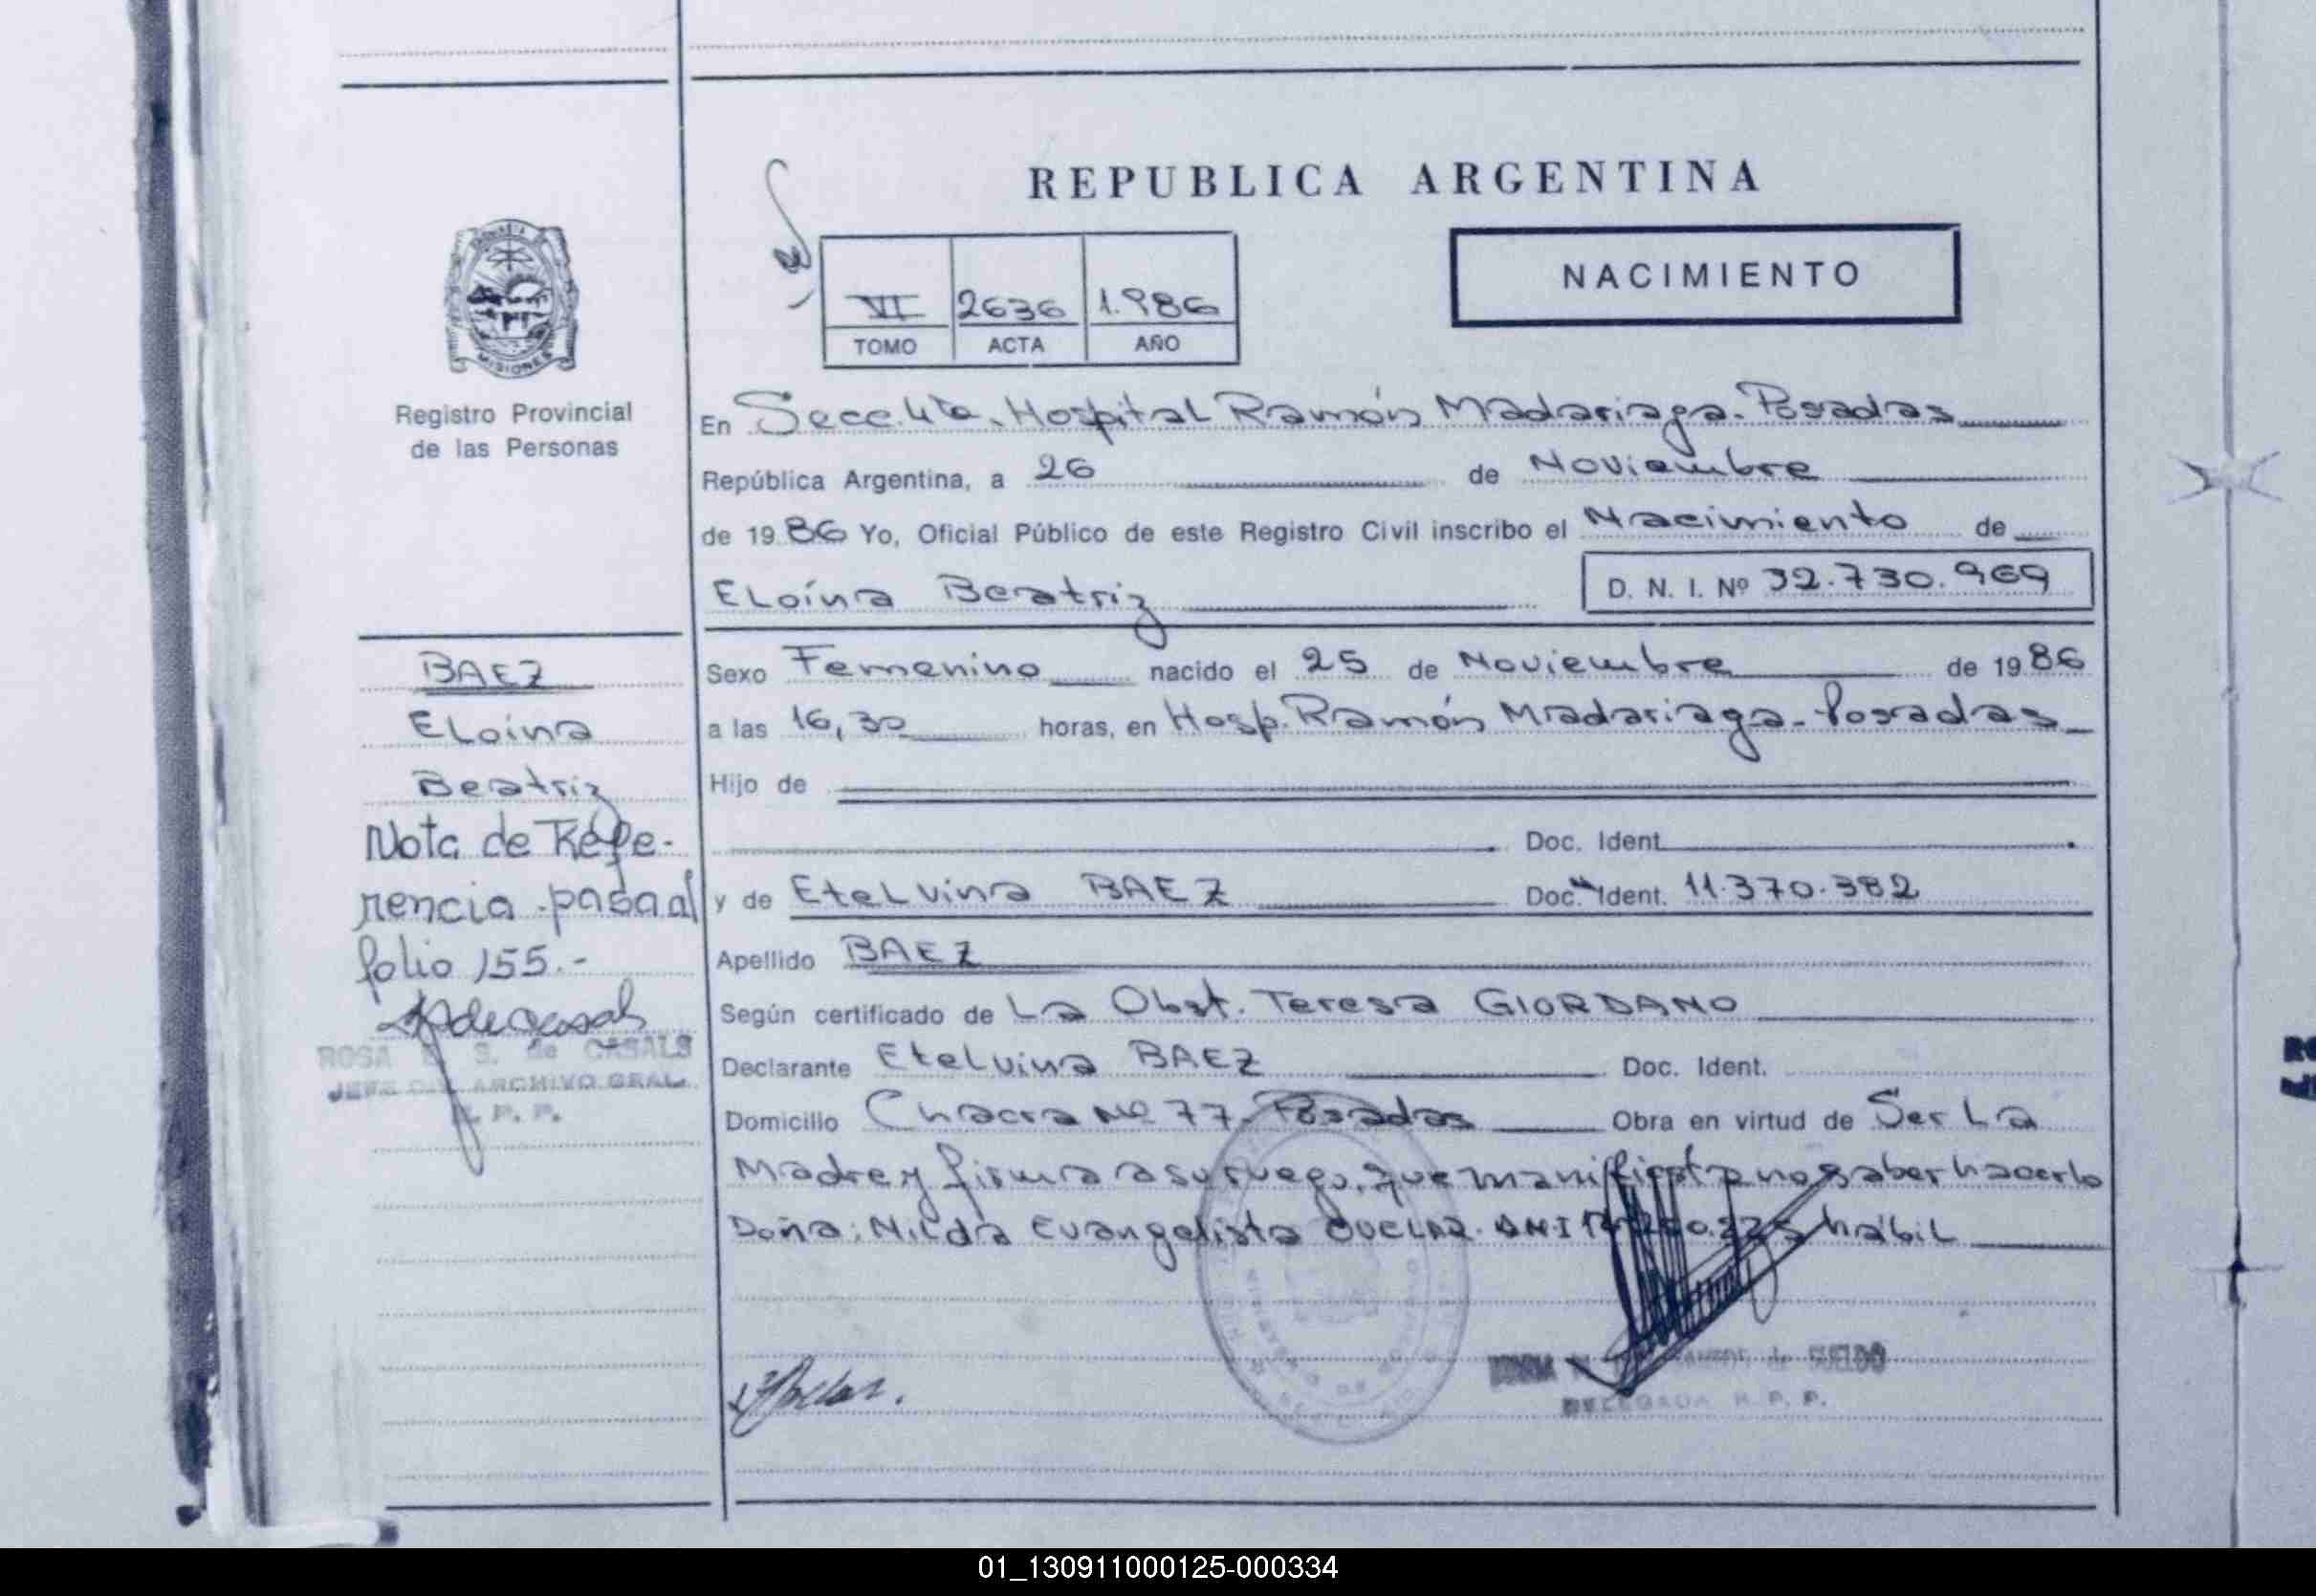 REPUBLICA ARGENTINA
NACIMIENTO
VI 2636 1.986
TOMO ACTA AÑO
MISIONES
Registro Provincial
de las Personas
En Secc. 4ta. Hospital Ramón Madariaga. Posadas
República Argentina, a 26 de Noviembre
de 1986 Yo, Oficial Público de este Registro Civil inscribo el Nacimiento de
ELoína Beatriz D. N. I. Nº 32.730.969
BAEZ
ELoína
Beatriz
Nota de Refe-
rencia pasa al
folio 155.-
ROSA S. de CASALS
JEFE DIV. ARCHIVO GRAL.
R. P. P.
Sexo Femenino nacido el 25 de Noviembre de 1986
a las 16,30 horas, en Hosp. Ramón Madariaga - Posadas
Hijo de
Doc. Ident.
y de EteLvina BAEZ Doc. Ident. 11.370.382
Apellido BAEZ
Según certificado de La Obst. Teresa GIORDANO
Declarante EteLvina BAEZ Doc. Ident.
Domicilio Chacra Nº 77 - Posadas Obra en virtud de Ser La
Madre y firma a su ruego, que manifiesta no saber hacerlo
Doña: NiLda Evangelista D.N.I hábiL
de SUELDO
DELEGADA R. P. P.
01_130911000125-000334